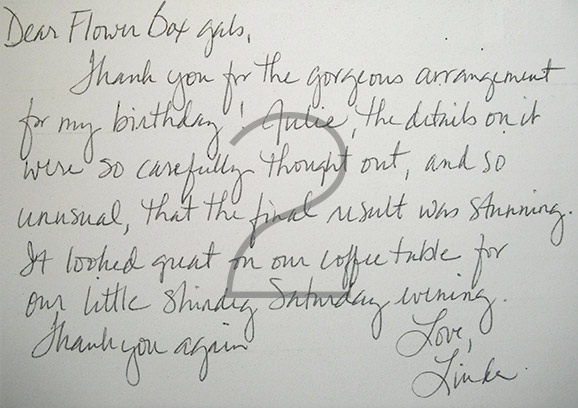 Dear Flower Box gals,
Thank you for the gorgeous arrangement
for my birthday! Julie, the details on it
were so carefully thought out, and so
unusual, that the final result was stunning.
It looked great on our coffee table for
our little shindig Saturday evening.
Thank you again
Love,
Linda
2